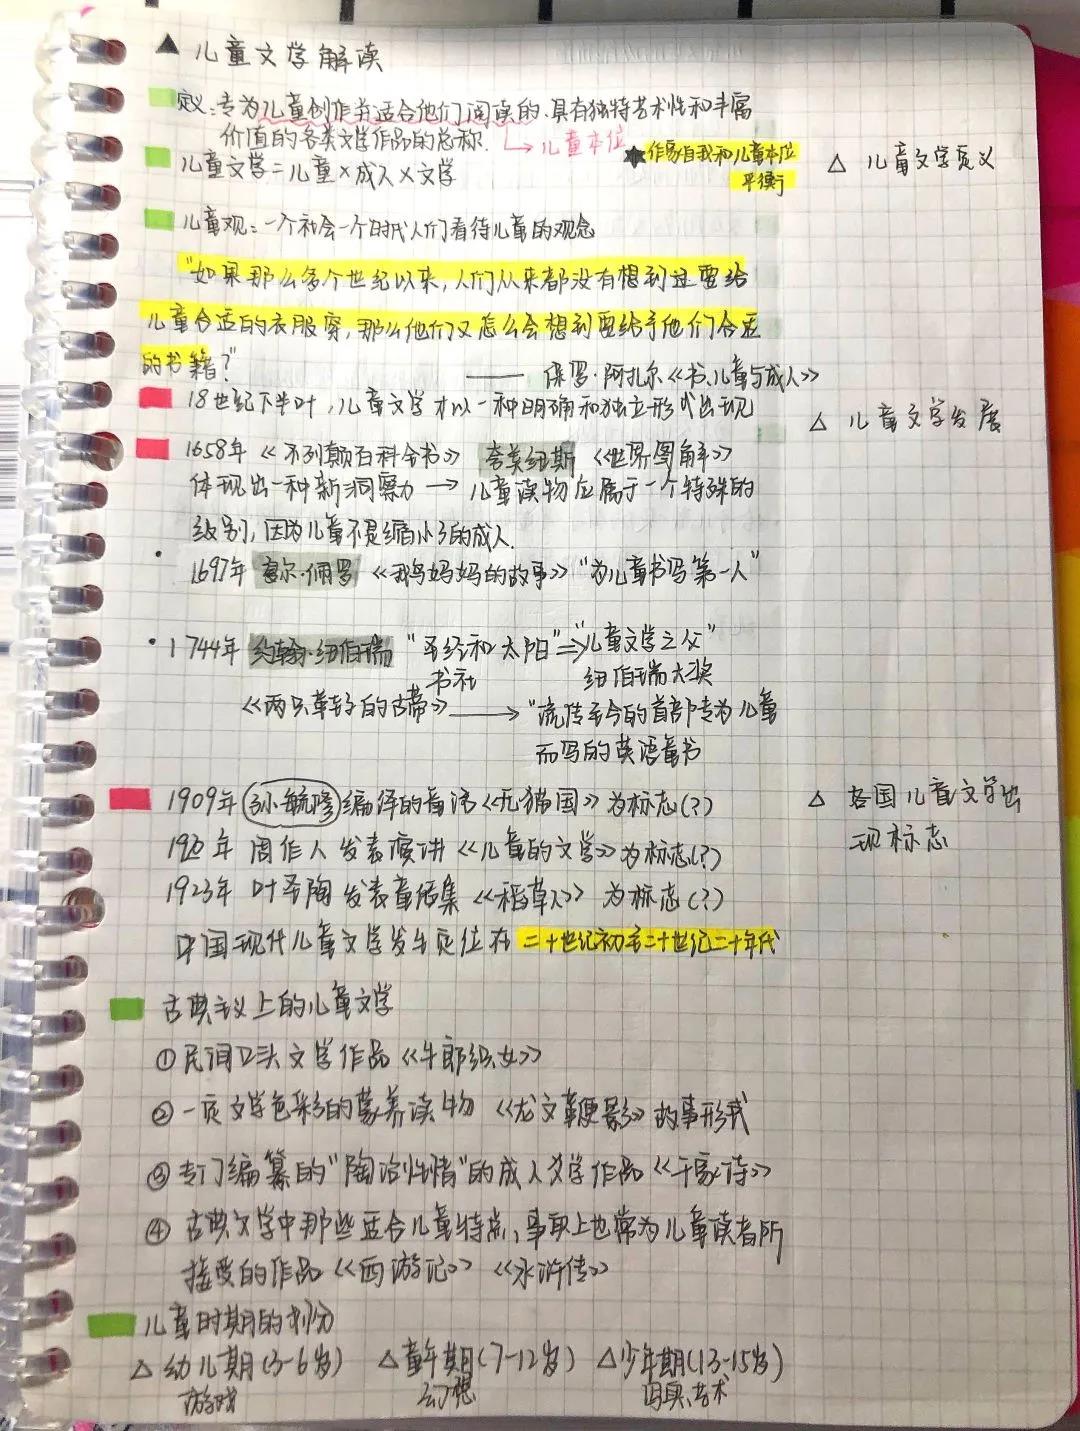 ▲ 儿童文学解读
定义:专为儿童创作并适合他们阅读的、具有独特艺术性和丰富
价值的各类文学作品的总称.
↳儿童本位
★作家自我和儿童本位
平衡
△ 儿童文学定义
儿童文学=儿童×成人×文学
儿童观:一个社会一个时代人们看待儿童的观念
"如果那么多个世纪以来,人们从来都没有想到过要给
儿童合适的衣服穿,那么他们又怎么会想到要给予他们合适
的书籍?"
—— 保罗·阿扎尔《书、儿童与成人》
18世纪下半叶,儿童文学才以一种明确和独立形式出现
△ 儿童文学发展
1658年《不列颠百科全书》 夸美纽斯《世界图解》
体现出一种新洞察力→儿童读物应属于一个特殊的
级别,因为儿童不是缩小了的成人.
· 1697年 夏尔·佩罗《鹅妈妈的故事》"为儿童书写第一人"
· 1744年 约翰·纽伯瑞 "圣经和太阳"⇒"儿童文学之父"
书社 纽伯瑞大奖
《两只鞋子的故事》→"流传至今的首部专为儿童
而写的英语童书
1909年 孙毓修编译的童话《无猫国》为标志(?)
△ 各国儿童文学出
现标志
1920年 周作人发表演讲《儿童的文学》为标志(?)
1923年 叶圣陶发表童话集《稻草人》为标志(?)
中国现代儿童文学发生定位在二十世纪初至二十世纪二十年代
古典主义上的儿童文学
①民间口头文学作品《牛郎织女》
②一定文学色彩的蒙养读物《龙文鞭影》故事形式
③专门编纂的"陶冶性情"的成人文学作品《千家诗》
④古典文学中那些适合儿童特点,事实上也常为儿童读者所
接受的作品《西游记》《水浒传》
儿童时期的划分
△幼儿期(3-6岁) △童年期(7-12岁) △少年期(13-15岁)
游戏 幻想 写实、艺术